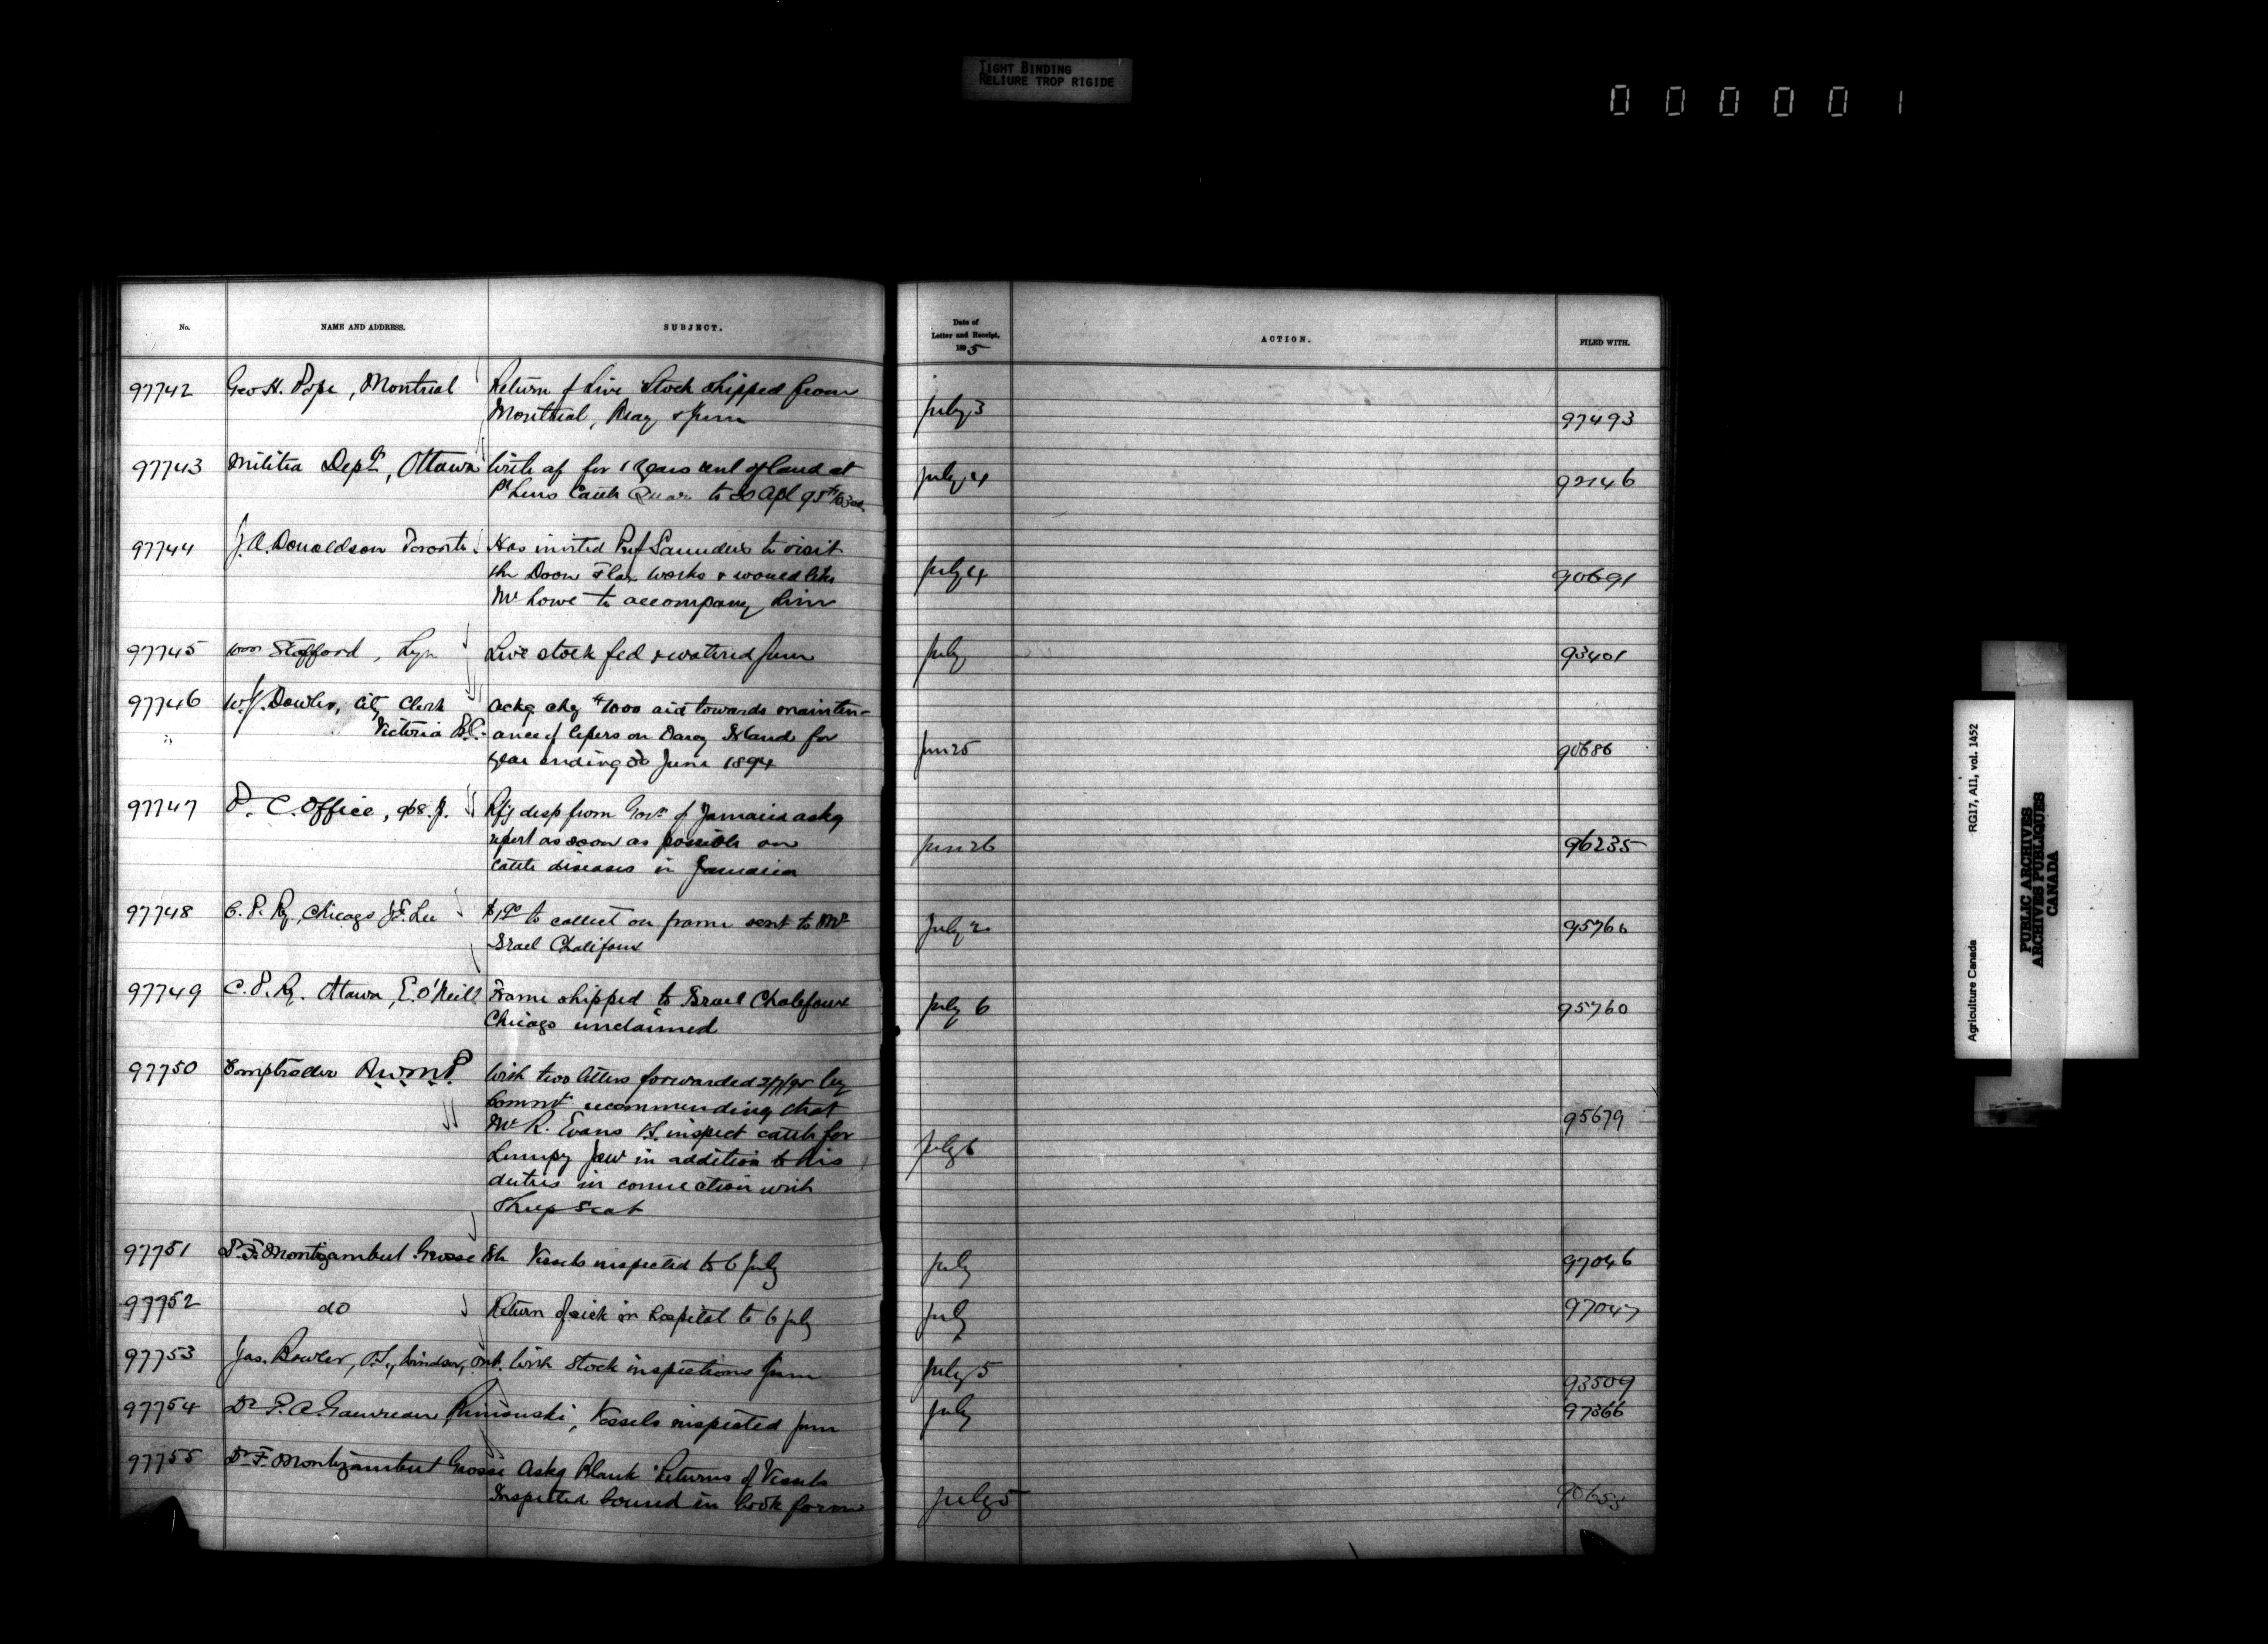 TIGHT BINDING
RELIURE TROP RIGIDE
0 0 0 0 0 1
No. NAME AND ADDRESS. SUBJECT. Date of Letter and Receipt, 1895 ACTION. FILED WITH.
97742 Geo H. Pope, Montreal Return of Live Stock shipped from
Montreal, May & June July 3 97493
97743 Militia Dept, Ottawa With af for 1 years rent of land at
Pt Levis Cattle Quar. to 30 Apl 95 July 4 92146
97744 J. A. Donaldson Toronto Has invited Prof Saunders to visit
the Doon Flax works & would like July 4 90691
Mr Lowe to accompany him
97745 Wm Stafford, Lyn Live stock fed & watered June July 93401
97746 W. J. Dowler, City Clerk Ackg chq $1000 aid towards mainten-
Victoria B.C. ance of lepers on Darcy Island for
year ending 30 June 1894 Jun 25 90686
97747 P. C. Office, 968. J. Rfg desp from Govr of Jamaica askg
report as soon as possible on Jun 26 96235
cattle diseases in Jamaica
97748 C. P. Ry. Chicago J. F. Lee $1.90 to collect on frame sent to Mr
Israel Chalifoux July 2 95760
97749 C. P. Ry. Ottawa, E. O'Neill Frame shipped to Israel Chalifoux
Chicago unclaimed July 6 95760
97750 Comptroller N.W.M.P. With two letters forwarded by
Commr recommending that
Mr R. Evans V.S. inspect cattle for 95679
Lumpy Jaw in addition to his July 6
duties in connection with
Sheep Scab
97751 Dr F. Montizambert Grosse Isle Vessels inspected to 6 July July 97046
97752 do Return of sick in hospital to 6 July July 97047
97753 Jas. Bowler, P.S., Windsor, Ont. With Stock inspections June July 5 93509
97754 Dr P. A. Gauvreau, Rimouski, Vessels inspected June July 97366
97755 Dr F. Montizambert Grosse Askg Blank Returns of Vessels
Inspected bound in book form July 5
Agriculture Canada RG17, AII, vol. 1452
PUBLIC ARCHIVES
ARCHIVES PUBLIQUES
CANADA